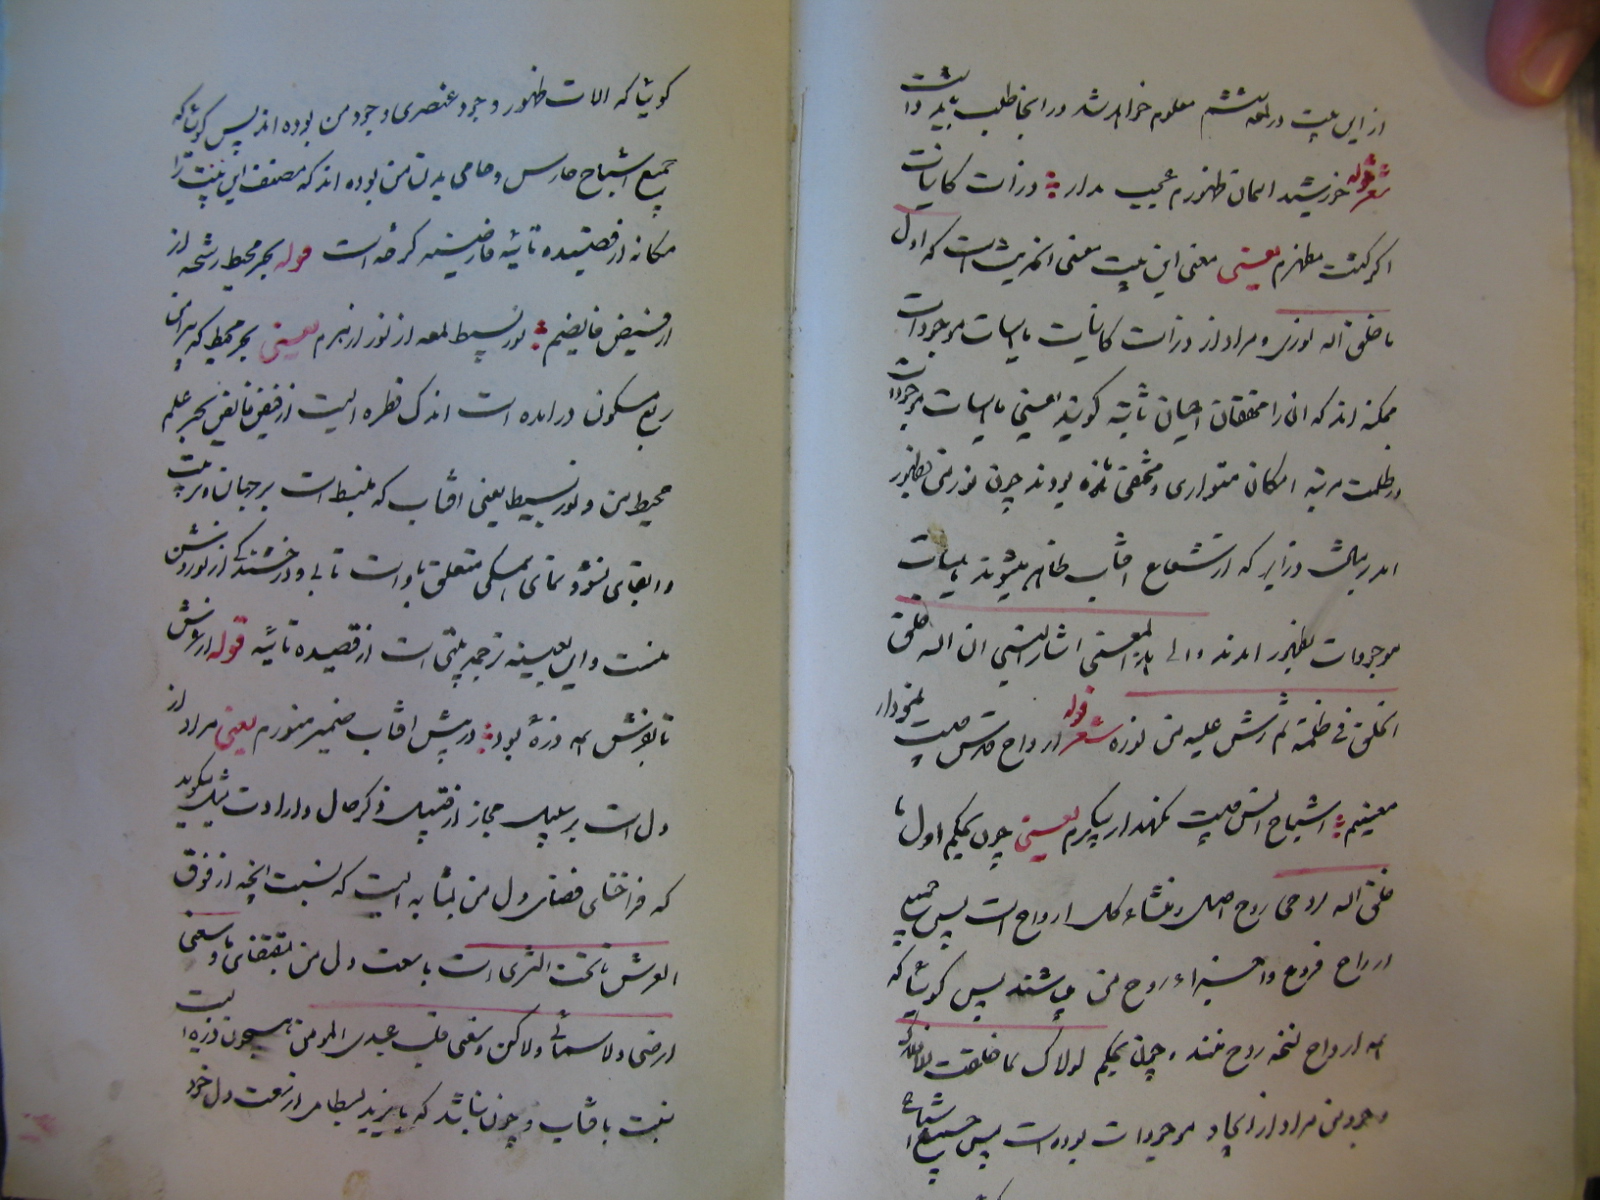 از این بیت در لمعه ششم معلوم خواهد شد در انجا طلب باید داشت
شعر قوله خورشید اسمان ظهورم عجب مدار ذرات کاینات
اگر گشت مظهرم یعنی معنی این بیت معنی است که اول
ما خلق اله نوری و مراد از ذرات کاینات ماهیات موجودات
ممکنه اند که ان را محققان اعیان ثابته گویند یعنی ماهیات موجودات
در ظلمت مرتبه امکان متواری و مختفی بودند چون نور من بظهور
امد برمثال ذراتی که از شعاع افتاب ظاهر میشوند ماهیات
موجودات بظهور امدند و الی هذا المعنی اشار النبی ان اله خلق
الخلق فی ظلمة ثم رش علیه من نوره شعر قوله ارواح قدس چیست نمودار
معنیم اشباح انس چیست نگهدار پیکرم یعنی چون بحکم اول ما
خلق اله روحی روح اصل و منشاء کل ارواح است پس جمیع
ارواح فروع و اجزاء روح من باشند پس گوئیا که
همه ارواح نفخه روح منند و چون بحکم لولاک لما خلقت الافلاک
وجود من مراد از ایجاد موجودات بوده است پس جمیع اشباح
گوئیا که الات ظهور وجود عنصری وجود من بوده اند پس گوئیا که
جمیع اشباح حارس و حامی بدن من بوده اند که مصنف این بیت را
مکانه از قصیده تائیه فارضیه کرده است قوله بحر محیط رشحه از
از فیض فایضم نور بسیط لمعه از نور ازهرم یعنی بحر محیط که
ربع مسکون درامده است اندک قطره ایست از فیض فایض بحر علم
محیط من و نور بسیط یعنی افتاب که منبسط است بر جهان و تربیت
و ابقای نشو و نمای همگی متعلق باو است تابی و درخشندگی از نور روشن
منست و این بعینه ترجمه بیتی است از قصیده تائیه قوله از عرش
تا بفرش همه ذرهٔ بود در پیش افتاب ضمیر منورم یعنی مراد از
دل است بر سبیل مجاز از قبیل ذکر حال و ارادت میگوید
که فراخنای فضای دل من بمثابه ایست که نسبت انچه از فوق
العرش تا تحت الثری است با سعت دل من بمقتضای ما وسعنی
ارضی ولا سمائی ولاکن وسعنی قلب عبدی المومن همچون ذره ایست
نسبت بافتاب و چون نباشد که بایزید بسطامی از سعت دل خود